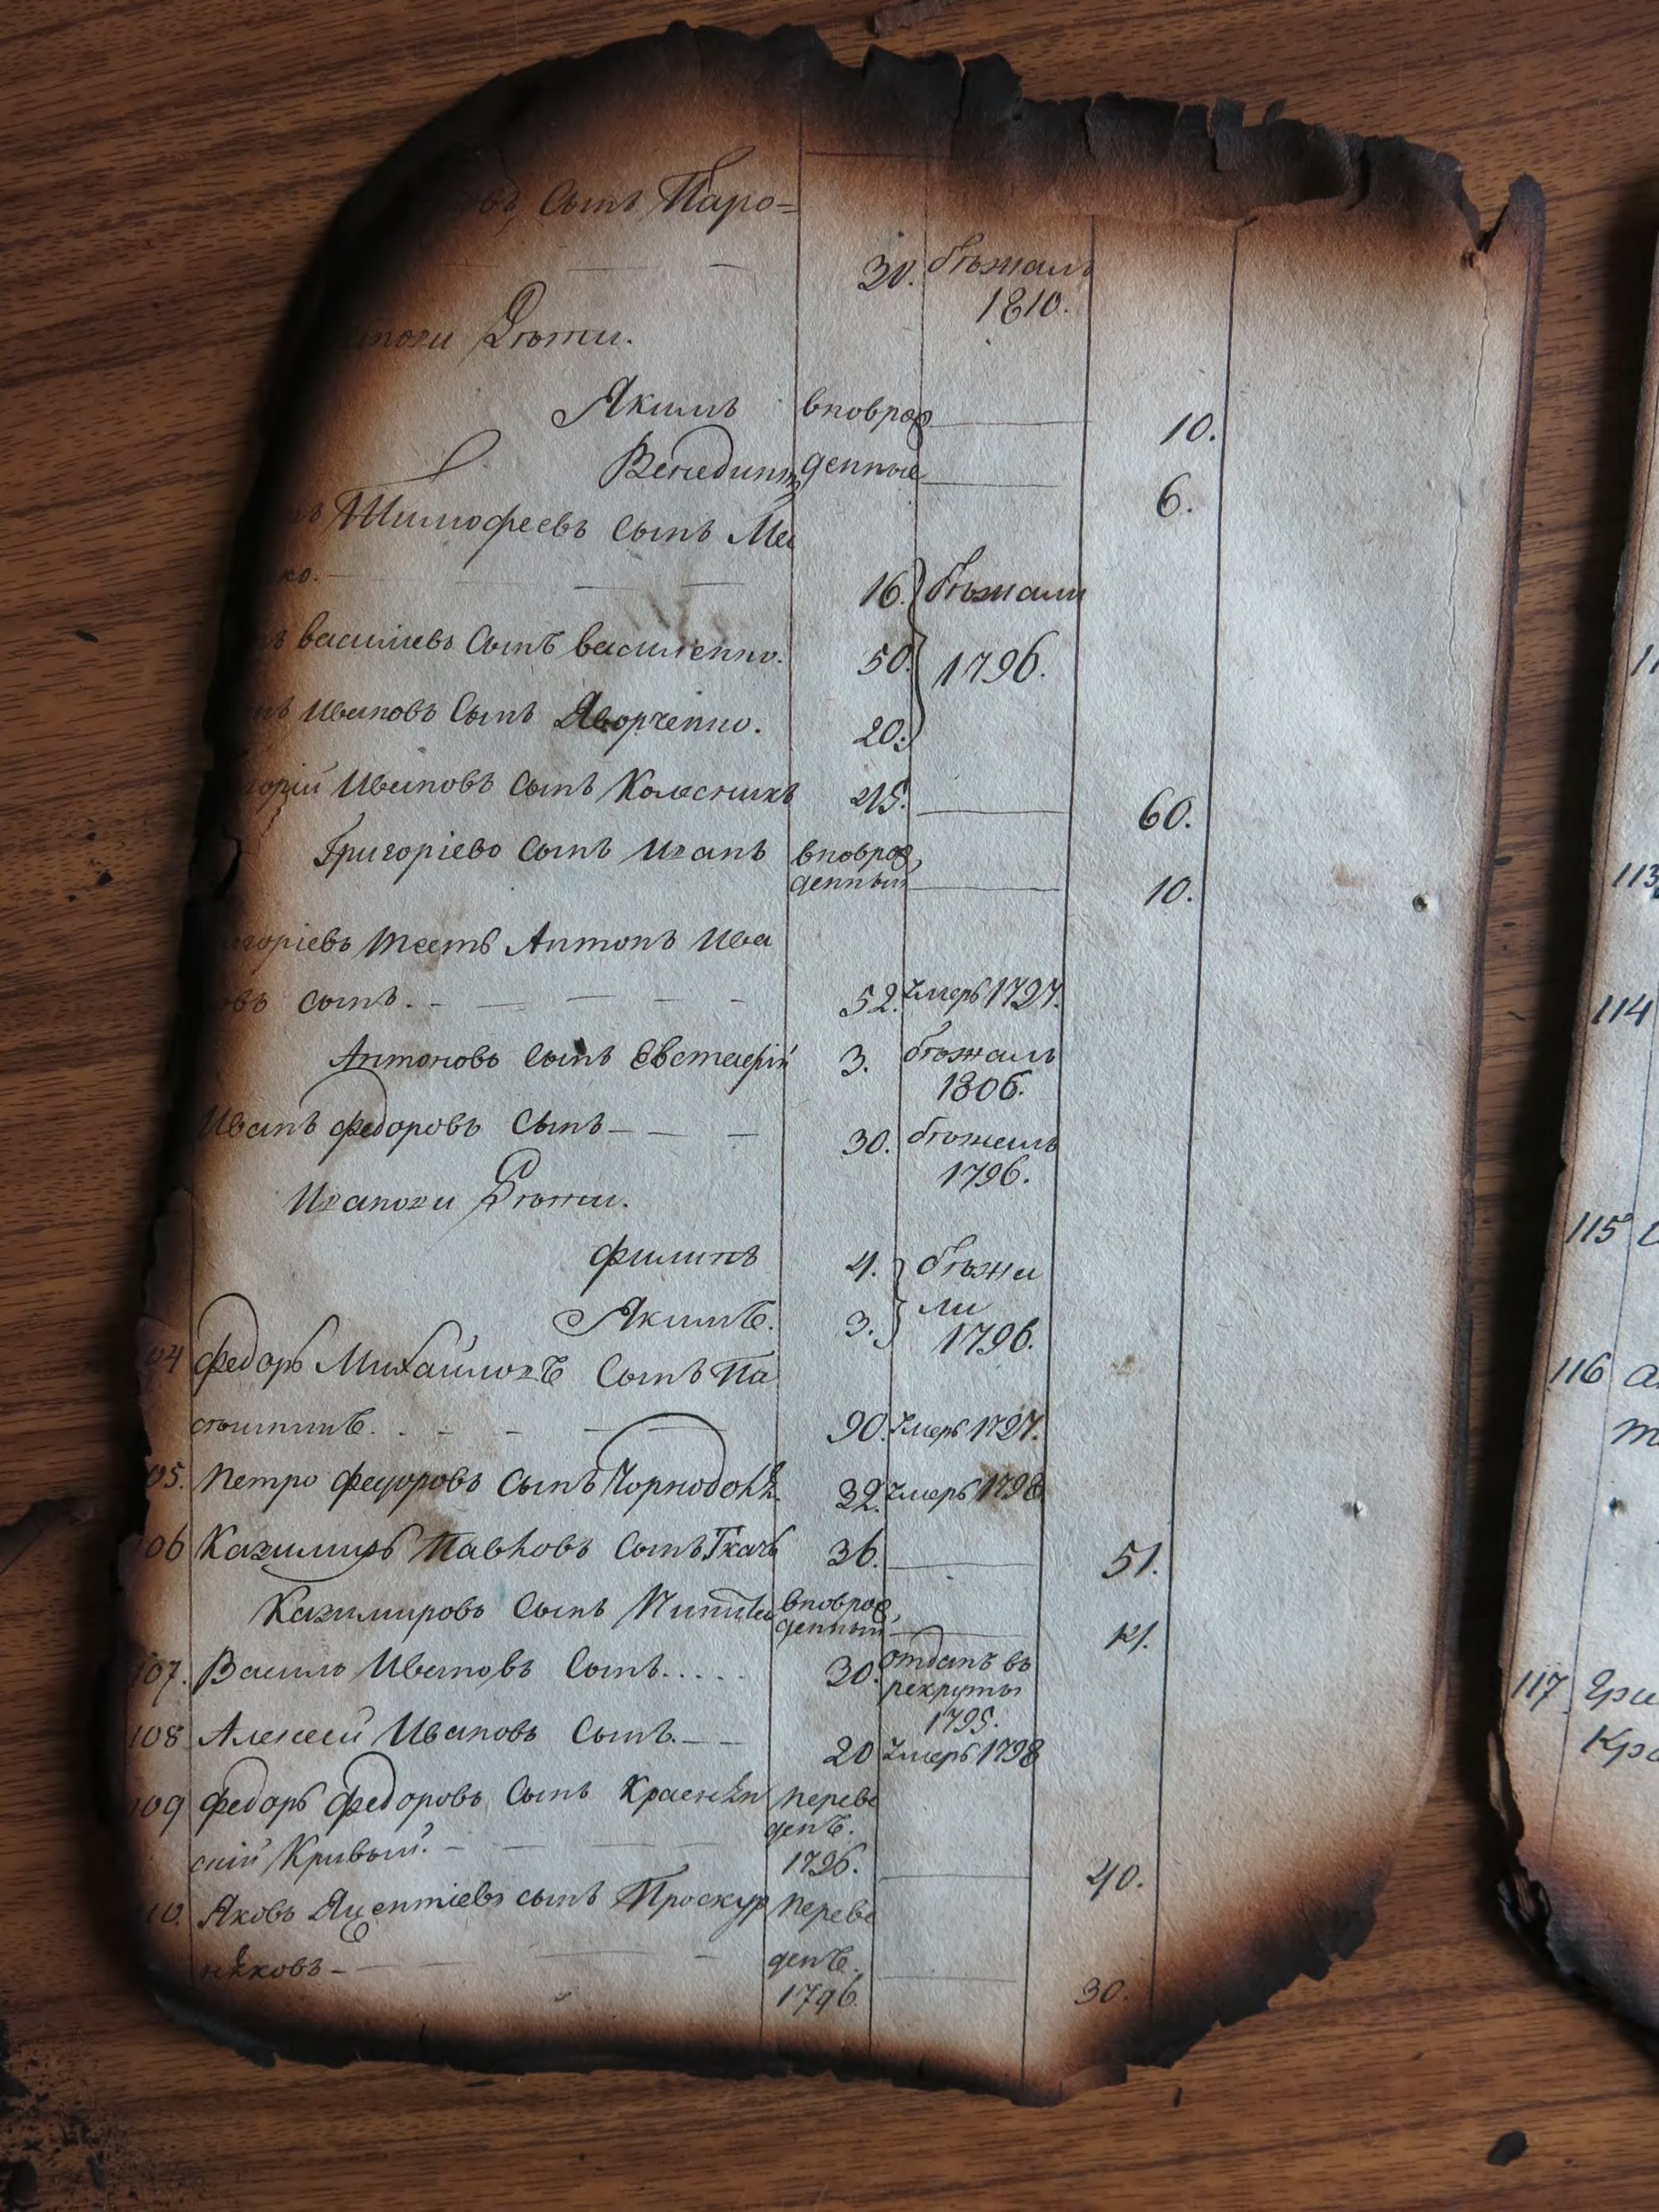 овъ сынъ Паро=
30. бѣжалъ
1810.
Дѣти.
Якимъ вновьрож
10.
Венедиктъ денные
6.
Тимофеевъ сынъ Ма
ко.
16. бѣжали
ъ васильевъ Сынъ василенко. 50. 1796.
нъ Ивановъ Сынъ Яворченко. 20.
горій Ивановъ сынъ Колесникъ 45. 60.
Григоріевъ сынъ Иванъ вновьрож
денный 10.
горіевъ тесть Антонъ Ива
овъ сынъ. 52. умеръ 1797.
Антоновъ сынъ Евстафій 3. бѣжалъ
1806.
Иванъ федоровъ Сынъ 30. бѣжалъ
1796.
Ивановы Дѣти.
филипъ 4. бѣжа
Якимъ. 3. ли
1796.
04 федоръ Михайловъ Сынъ Па
90. умеръ 1797.
05. петро федоровъ сынъ 32. умеръ 1798
06 Казимиръ Павловъ сынъ Ткачъ 36. 51.
Казимировъ Сынъ Никита вновьрож
денный 14.
107. Василь Ивановъ Сынъ..... 30. отданъ въ
рекруты
1795.
108 Алексей Ивановъ Сынъ. 20 умеръ 1798
109 федоръ федоровъ Сынъ переве
денъ.
скій Кривый. 1796. 40.
10. Яковъ сынъ Проскур переве
няковъ денъ.
1796. 30.
113
114
115
116
117 Гри
Кра